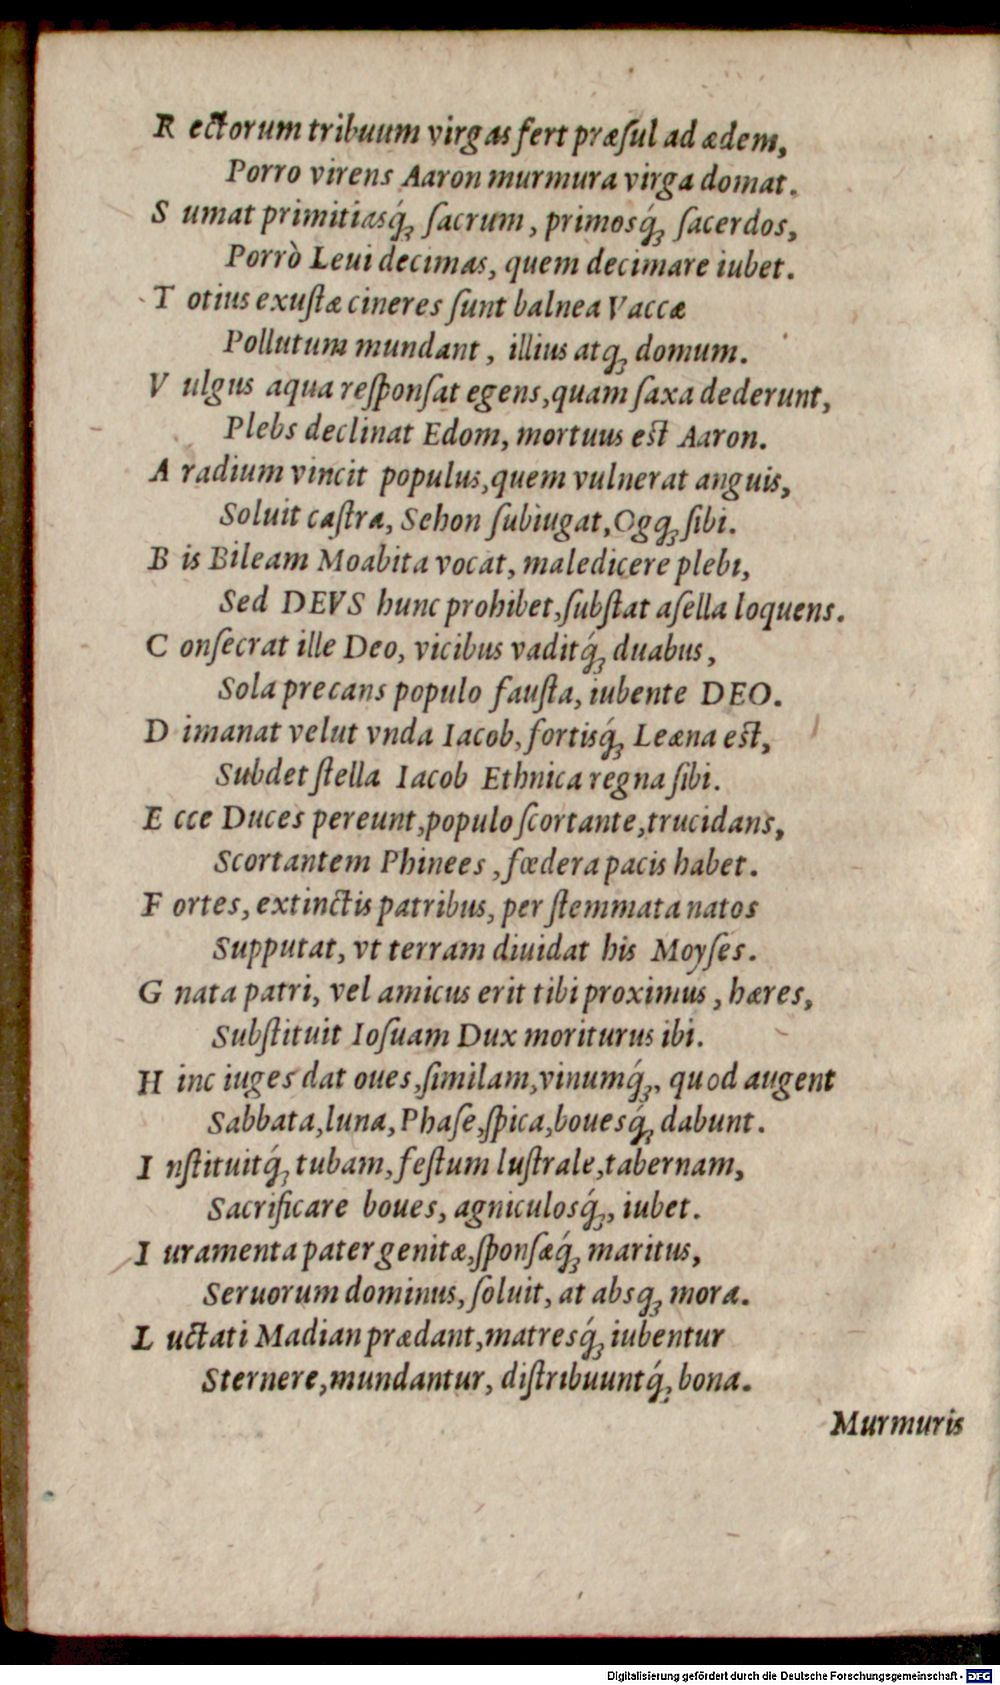 R ectorum tribuum virgas fert præſul ad ædem,
Porro virens Aaron murmura virga domat.
S umat primitiasq́ꝫ ſacrum, primosq́ꝫ ſacerdos,
Porrò Leui decimas, quem decimare iubet.
T otius exuſtæ cineres ſunt balnea Vaccæ
Pollutum mundant, illius atqꝫ domum.
V ulgus aqua reſponſat egens, quam ſaxa dederunt,
Plebs declinat Edom, mortuus est Aaron.
A radium vincit populus, quem vulnerat anguis,
Soluit caſtra, Sehon ſubiugat, Ogqꝫ ſibi.
B is Bileam Moabita vocat, maledicere plebi,
Sed DEVS hunc prohibet, ſubſtat aſella loquens.
C onſecrat ille Deo, vicibus vaditq́ꝫ duabus,
Sola precans populo fauſta, iubente DEO.
D imanat velut vnda Iacob, fortisq́ꝫ Leæna est,
Subdet ſtella Iacob Ethnica regna ſibi.
E cce Duces pereunt, populo ſcortante, trucidans,
Scortantem Phinees, fœdera pacis habet.
F ortes, extinctis patribus, per ſtemmata natos
Supputat, vt terram diuidat his Moyſes.
G nata patri, vel amicus erit tibi proximus, hæres,
Subſtituit Ioſuam Dux moriturus ibi.
H inc iuges dat oues, ſimilam, vinumq́ꝫ, quod augent
Sabbata, luna, Phaſe, ſpica, bouesq́ꝫ dabunt.
I nſtituitq́ꝫ tubam, feſtum luſtrale, tabernam,
Sacrificare boues, agniculosq́ꝫ, iubet.
I uramenta pater genitæ, ſponſæq́ꝫ maritus,
Seruorum dominus, ſoluit, at absqꝫ mora.
L uctati Madian prædant, matresq́ꝫ iubentur
Sternere, mundantur, diſtribuuntq́ꝫ bona.
Murmuris
Digitalisierung gefördert durch die Deutsche Forschungsgemeinschaft - DFG